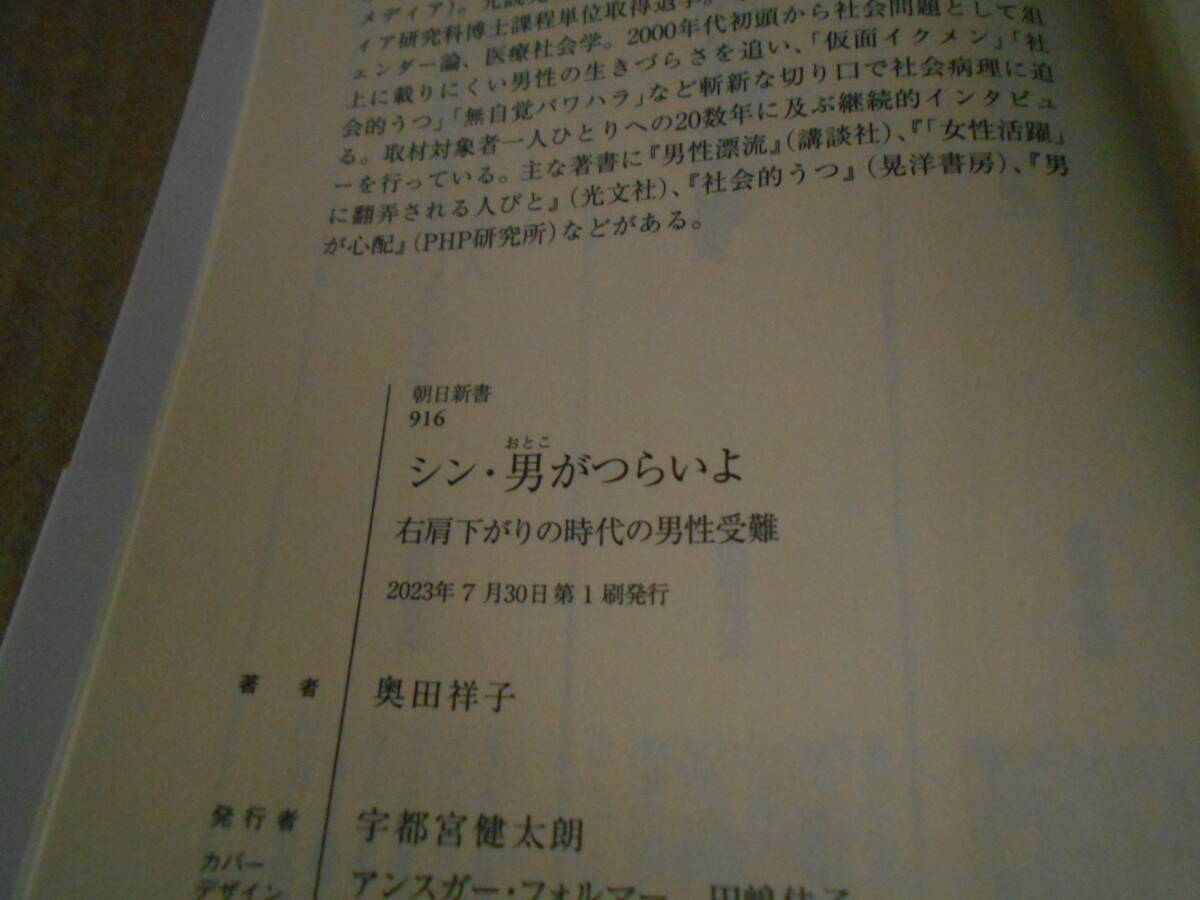 メディア)。元読売
ィア研究科博士課程単位取得退学。
ェンダー論、医療社会学。2000年代初頭から社会問題として俎
上に載りにくい男性の生きづらさを追い、「仮面イクメン」「社
会的うつ」「無自覚パワハラ」など斬新な切り口で社会病理に迫
る。取材対象者一人ひとりへの20数年に及ぶ継続的インタビュ
ーを行っている。主な著書に『男性漂流』(講談社)、『「女性活躍」
に翻弄される人びと』(光文社)、『社会的うつ』(晃洋書房)、『男
が心配』(PHP研究所)などがある。
朝日新書
916
おとこ
シン・男がつらいよ
右肩下がりの時代の男性受難
2023年7月30日第1刷発行
著者 奥田祥子
発行者 宇都宮健太朗
カバー
デザイン アンスガー・フォルマー 田嶋佳子